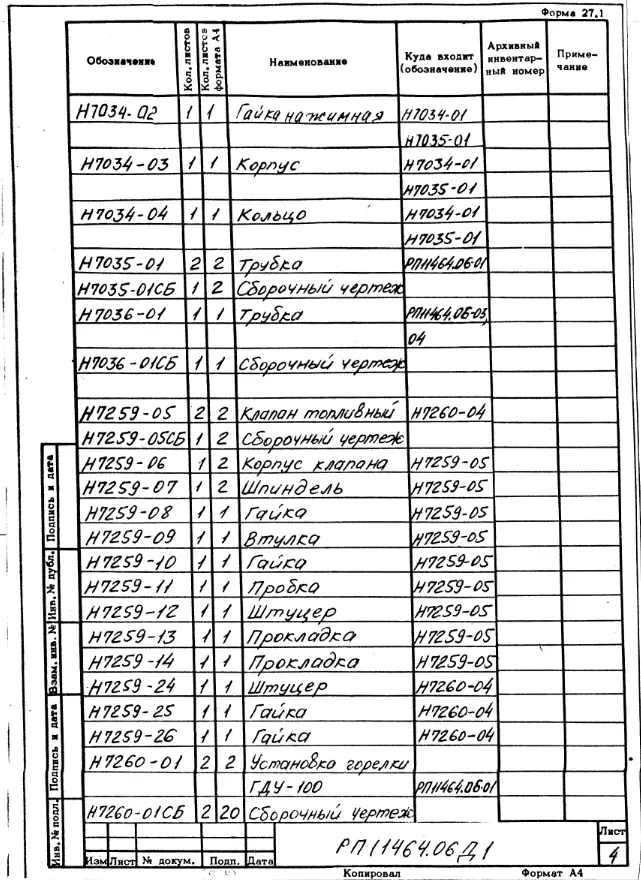 Форма 27.1
Обозначение Кол. листов Кол. листов формата А4 Наименование Куда входит (обозначение) Архивный инвентар- ный номер Приме- чание
Н7034-02 1 1 Гайка нажимная Н7034-01
Н7035-01
Н7034-03 1 1 Корпус Н7034-01
Н7035-01
Н7034-04 1 1 Кольцо Н7034-01
Н7035-01
Н7035-01 2 2 Трубка РП11464.06-01
Н7035-01СБ 1 2 Сборочный чертеж
Н7036-01 1 1 Трубка РП11464.06-03,
04
Н7036-01СБ 1 1 Сборочный чертеж
Н7259-05 2 2 Клапан топливный Н7260-04
Н7259-05СБ 1 2 Сборочный чертеж
Н7259-06 1 2 Корпус клапана Н7259-05
Н7259-07 1 2 Шпиндель Н7259-05
Н7259-08 1 1 Гайка Н7259-05
Н7259-09 1 1 Втулка Н7259-05
Н7259-10 1 1 Гайка Н7259-05
Н7259-11 1 1 Пробка Н7259-05
Н7259-12 1 1 Штуцер Н7259-05
Н7259-13 1 1 Прокладка Н7259-05
Н7259-14 1 1 Прокладка Н7259-05
Н7259-24 1 1 Штуцер Н7260-04
Н7259-25 1 1 Гайка Н7260-04
Н7259-26 1 1 Гайка Н7260-04
Н7260-01 2 2 Установка горелки
ГДУ-100 РП11464.06-01
Н7260-01СБ 2 20 Сборочный чертеж
Инв. № подл. Подпись и дата Взам. инв. № Инв. № дубл. Подпись и дата
Изм Лист № докум. Подп. Дата
РП11464.06Д1
Лист
4
Копировал Формат А4